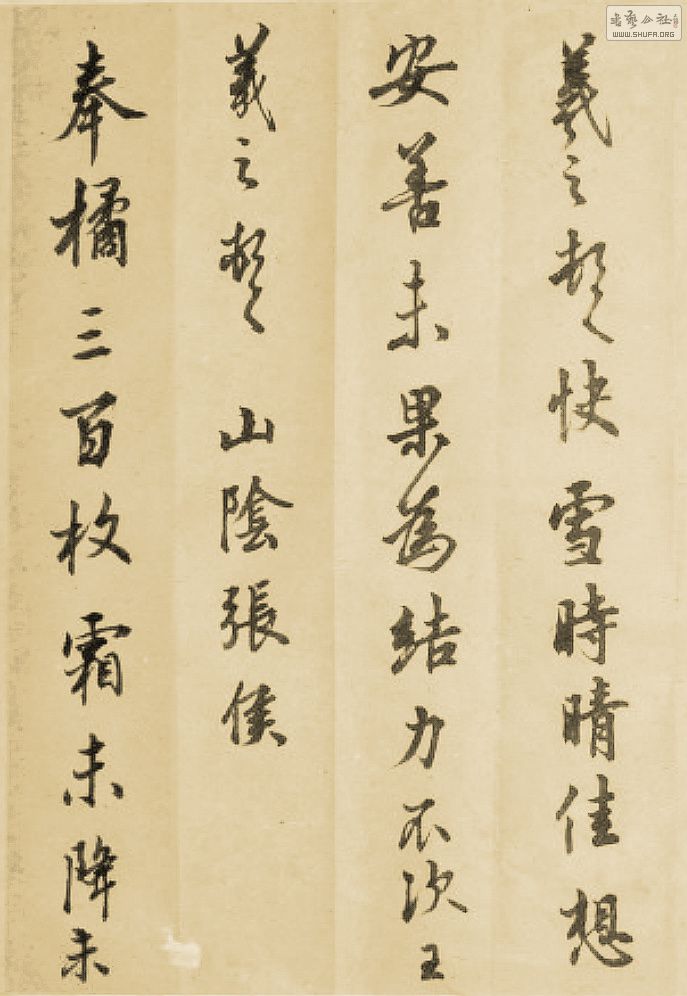 羲之頓首快雪時晴佳想
安善未果為結力不次王
羲之頓首山陰張侯
奉橘三百枚霜未降未
書藝公社
WWW.SHUFA.ORG